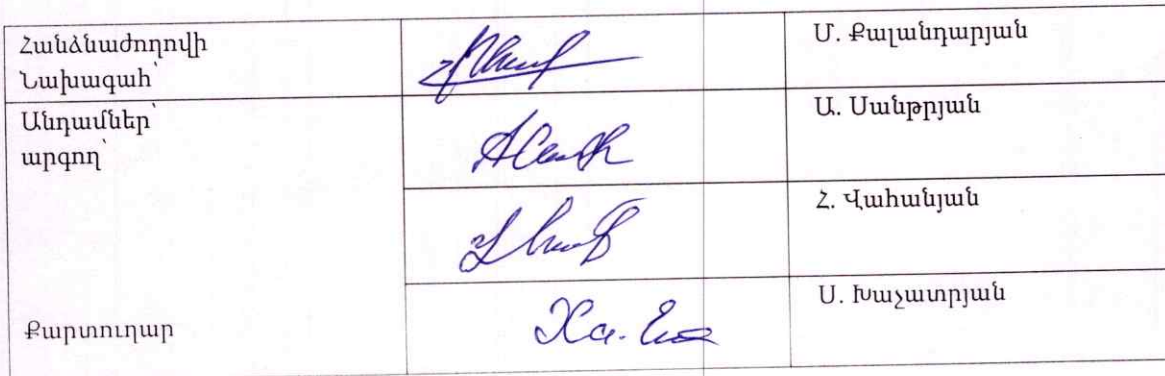 Հանձնաժողովի
Նախագահ՝
Մ. Քալանդարյան
Անդամներ՝
արգող՝
Ա. Սանթրյան
Հ. Վահանյան
Քարտուղար
Մ. Խաչատրյան